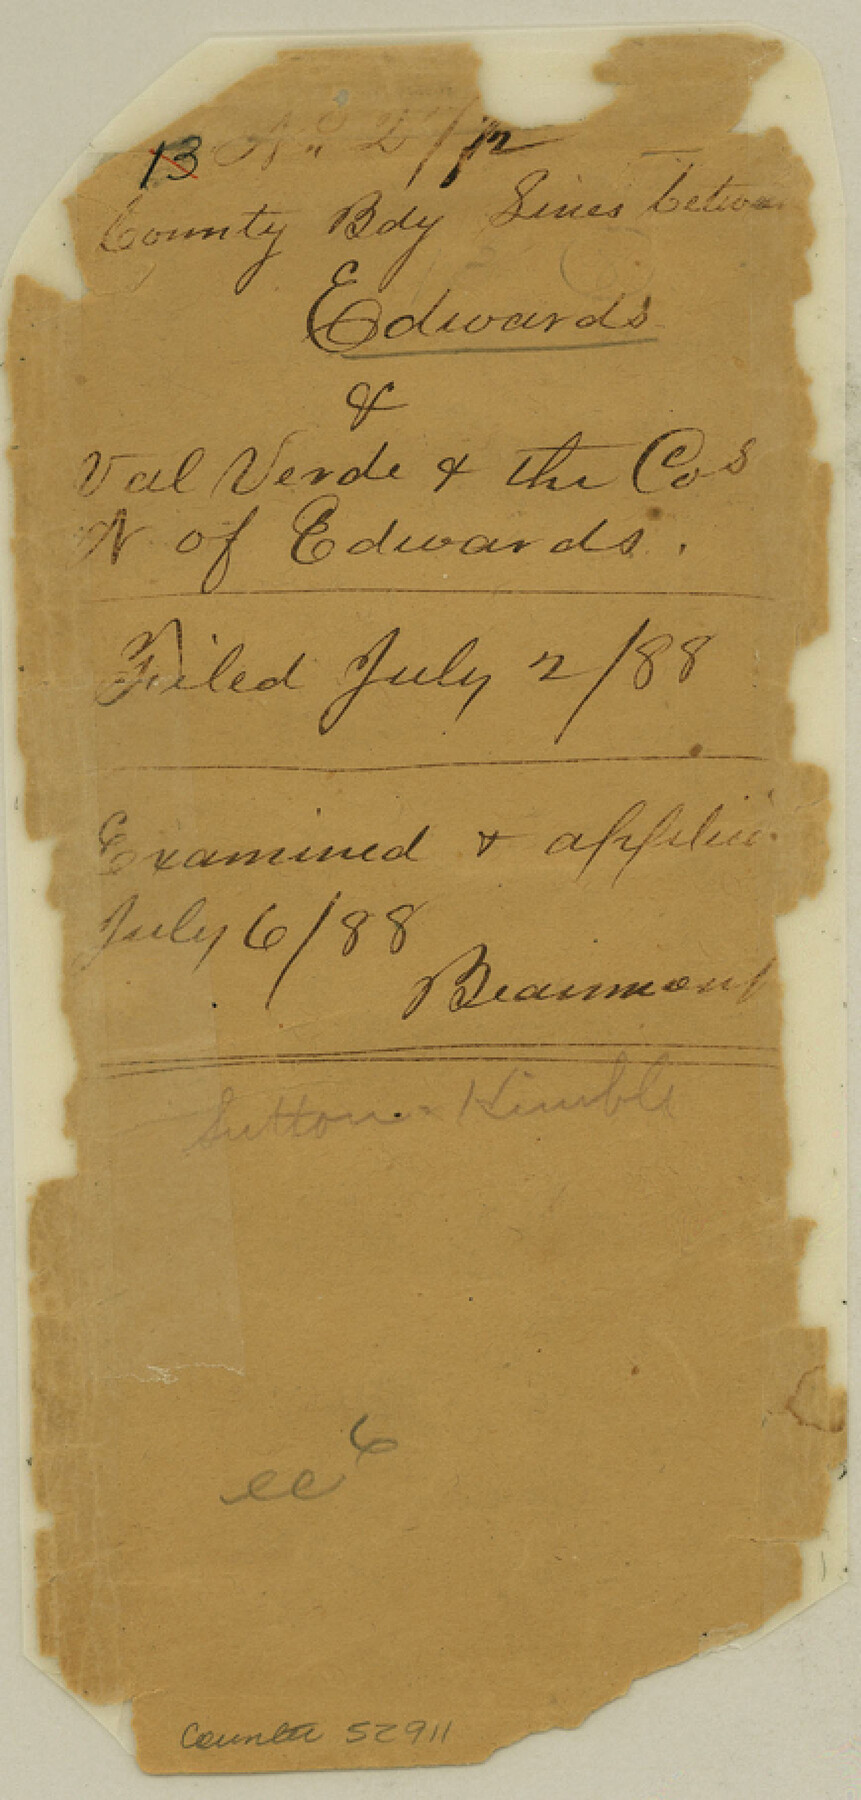 13
County Bdy Lines betwee
Edwards
&
Val Verde & the Cos
N of Edwards.
Filed July 2/88
Examined & applied
July 6/88
Beaumont
Sutton & Kimble
Counter 52911